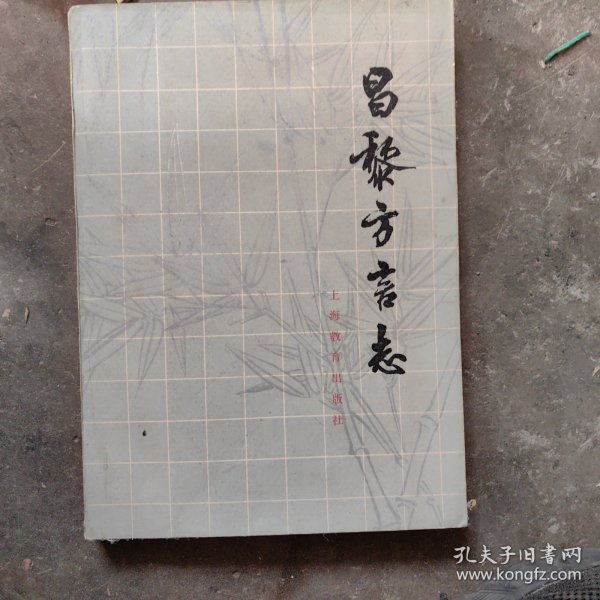 昌黎方言志
上海教育出版社
孔夫子旧书网
www.kongfz.com